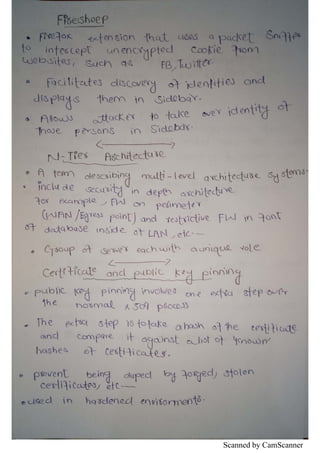 Firesheep
• Firefox extension that uses a packet Sniffer
to intercept unencrypted Cookie from
websites, Such as FB, Twitter.
• Facilitates discovery of identities and
displays them in Sidebar.
• Allows attacker to take over identity of
those persons in Sidebar.
N-Tier Architecture
• A term describing multi-level architecture systems.
• include security in depth architecture
for example, FW on perimeter
(WAN/Egress point) and restrictive FW in font
of database inside of LAN, etc.
• Group of server each with a unique role
Certificate and public key pinning
• public key pinning involves one extra step over
the normal x 509 process
• The extra step is to take a hash of the certificate
and compare it against a list of known
hashes of certificates.
• prevent being duped by forged, stolen
certificates, etc
• used in hardened environments.
Scanned by CamScanner